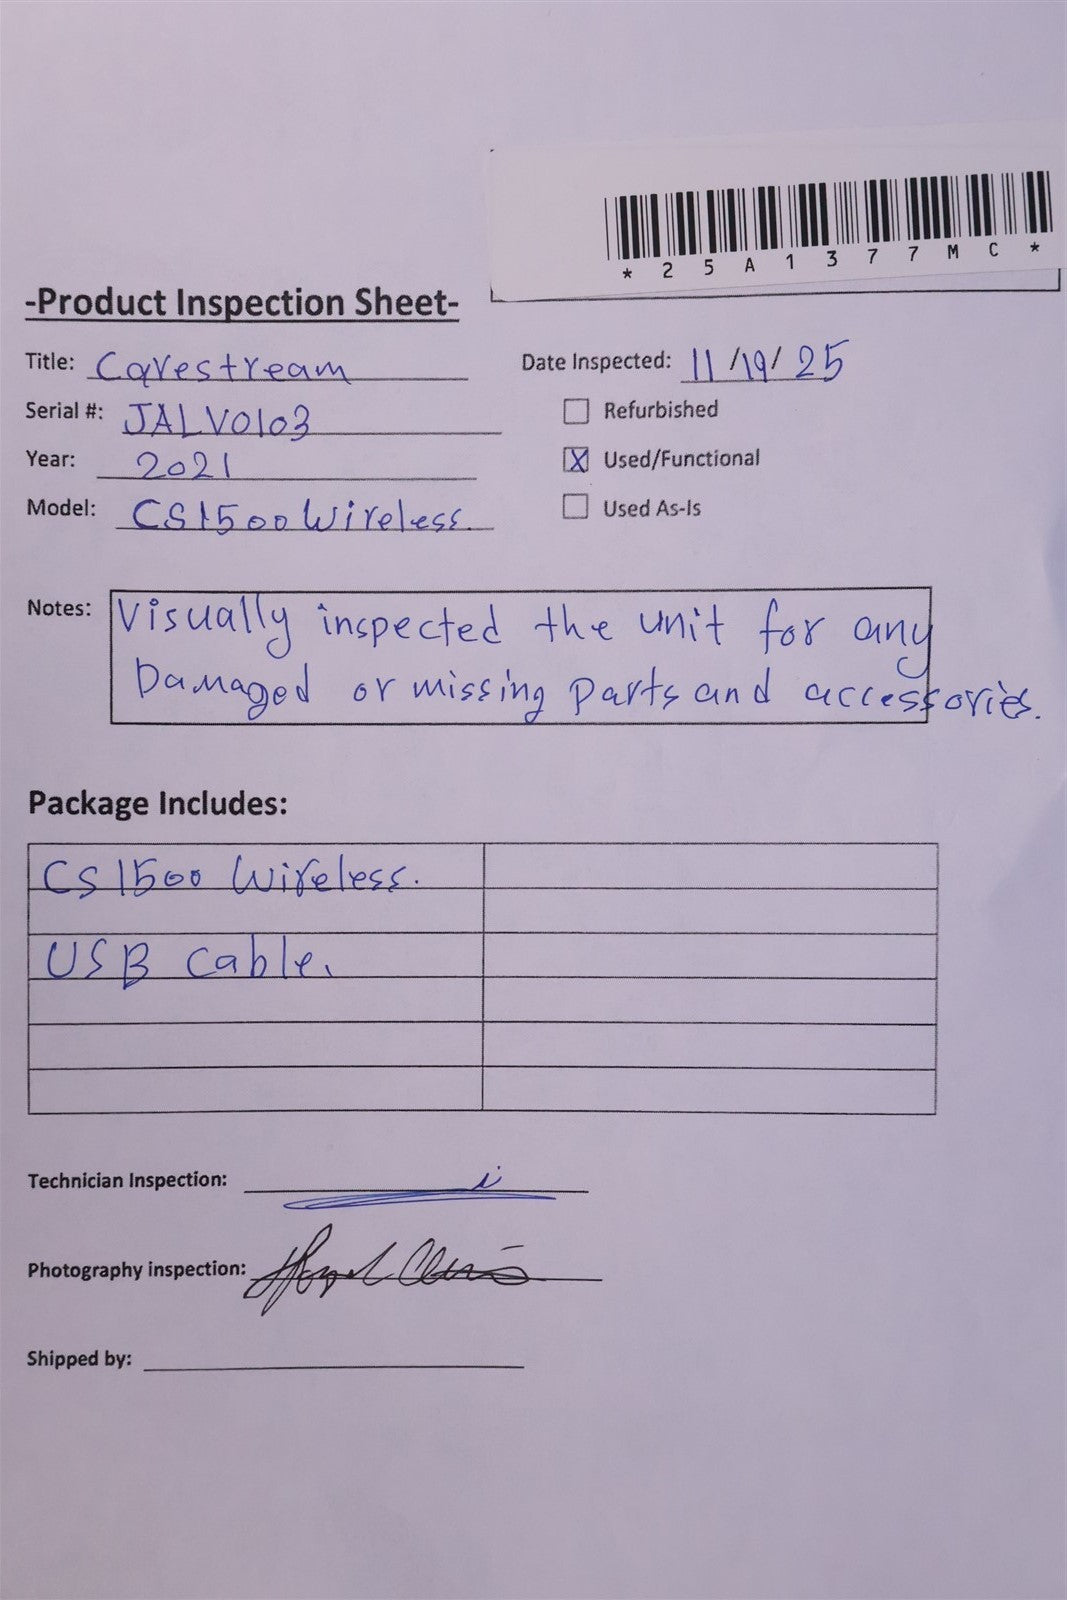 * 2 5 A 1 3 7 7 M C *
-Product Inspection Sheet-
Title: Carestream
Date Inspected: 11/19/25
Serial #: JALV0103
Refurbished
Year: 2021
X Used/Functional
Model: CS1500 Wireless.
Used As-Is
Notes: Visually inspected the unit for any
Damaged or missing parts and accessories.
Package Includes:
CS 1500 Wireless.
USB Cable.
Technician Inspection:
Photography inspection:
Shipped by: